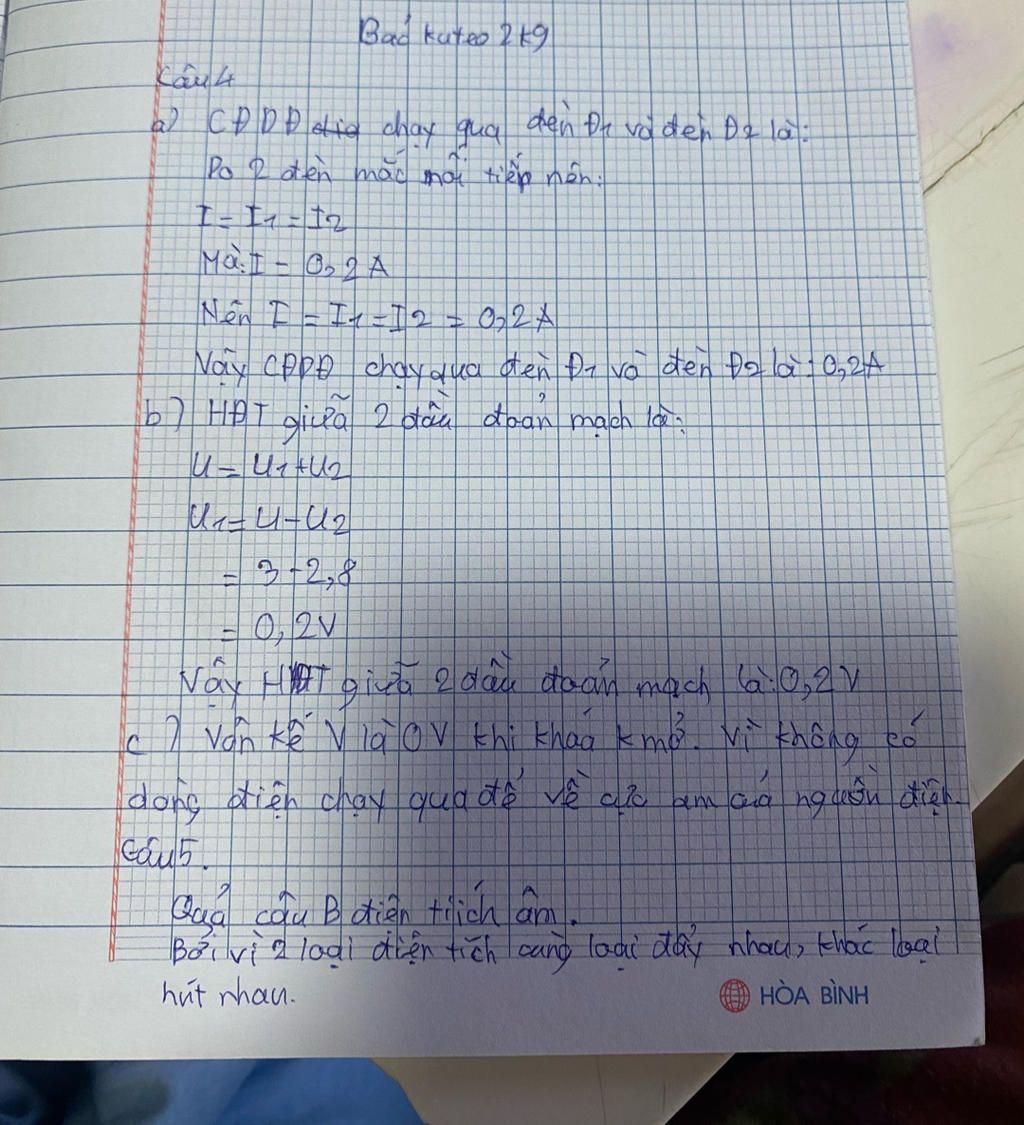 Bảo kuteo 2k9
Câu 4
a) CĐDĐ chạy qua đèn Đ1 và đèn Đ2 là:
Do 2 đèn mắc nối tiếp nên:
I = I1 = I2
Mà: I = 0,2A
Nên I = I1 = I2 = 0,2A
Vậy CĐDĐ chạy qua đèn Đ1 và đèn Đ2 là: 0,2A
b) HĐT giữa 2 đầu đoản mạch là:
U = U1 + U2
U1 = U - U2
= 3 - 2,8
= 0,2V
Vậy HĐT giữa 2 đầu đoản mạch là: 0,2V
c) Vôn kế V là 0V khi khoá k mở. Vì không có
dòng điện chạy qua để về cực âm của nguồn điện.
Câu 5.
Quả cầu B điện tích âm.
Bởi vì 2 loại điện tích cùng loại đẩy nhau, khác loại
hút nhau.
HÒA BÌNH